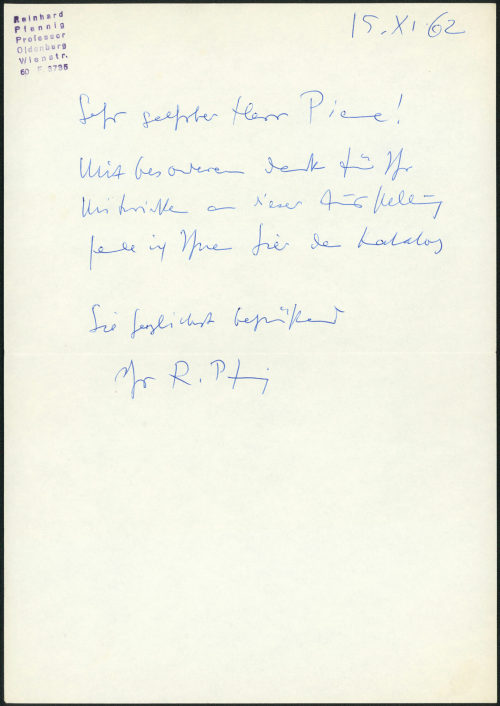 Reinhard
Pfennig
Professor
Oldenburg
Wienstr.
60 F. 3735
15.XI.62
Sehr geehrter Herr Piene!
Mit besonderem Dank für Ihr
Mitwirken an dieser Ausstellung
sende ich Ihnen hier den Katalog
Sie herzlichst begrüßend
Ihr R. Pfennig